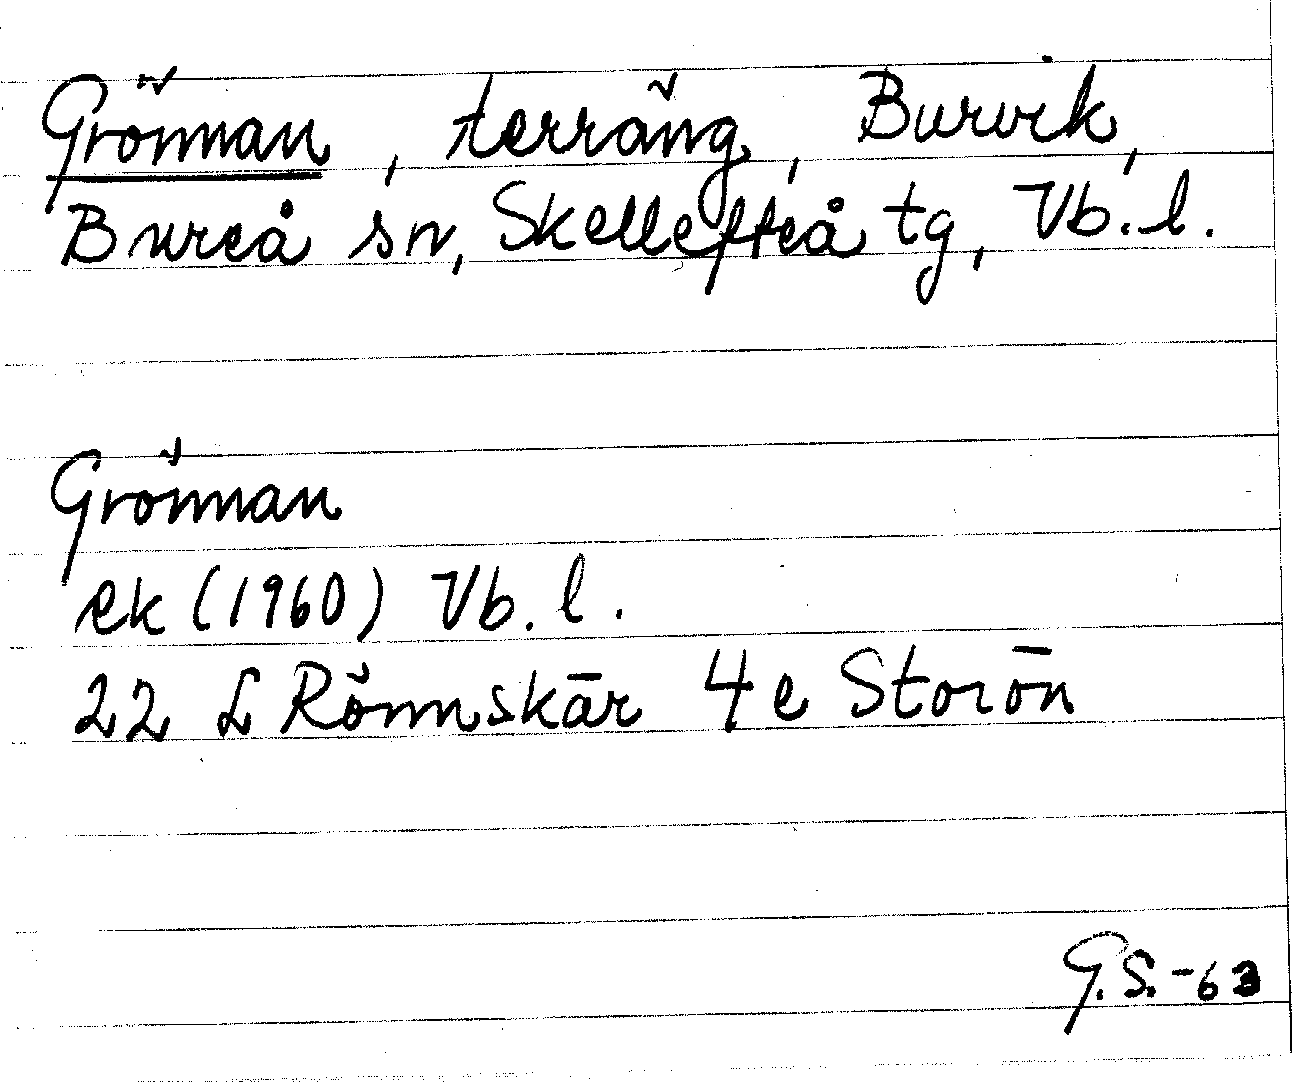 Grönnan, terräng, Burvik,
Bureå sn, Skellefteå tg, Vb. l.
Grönnan
ek (1960) Vb. l.
22 L Rönnskär 4e Storön
G.S.-63